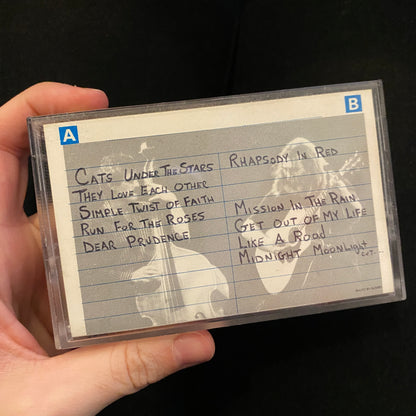 A
CATS UNDER THE STARS
THEY LOVE EACH OTHER
SIMPLE TWIST OF FAITH
RUN FOR THE ROSES
DEAR PRUDENCE
B
RHAPSODY IN RED
MISSION IN THE RAIN
GET OUT OF MY LIFE
LIKE A ROAD
MIDNIGHT MOONLIGHT
CUT